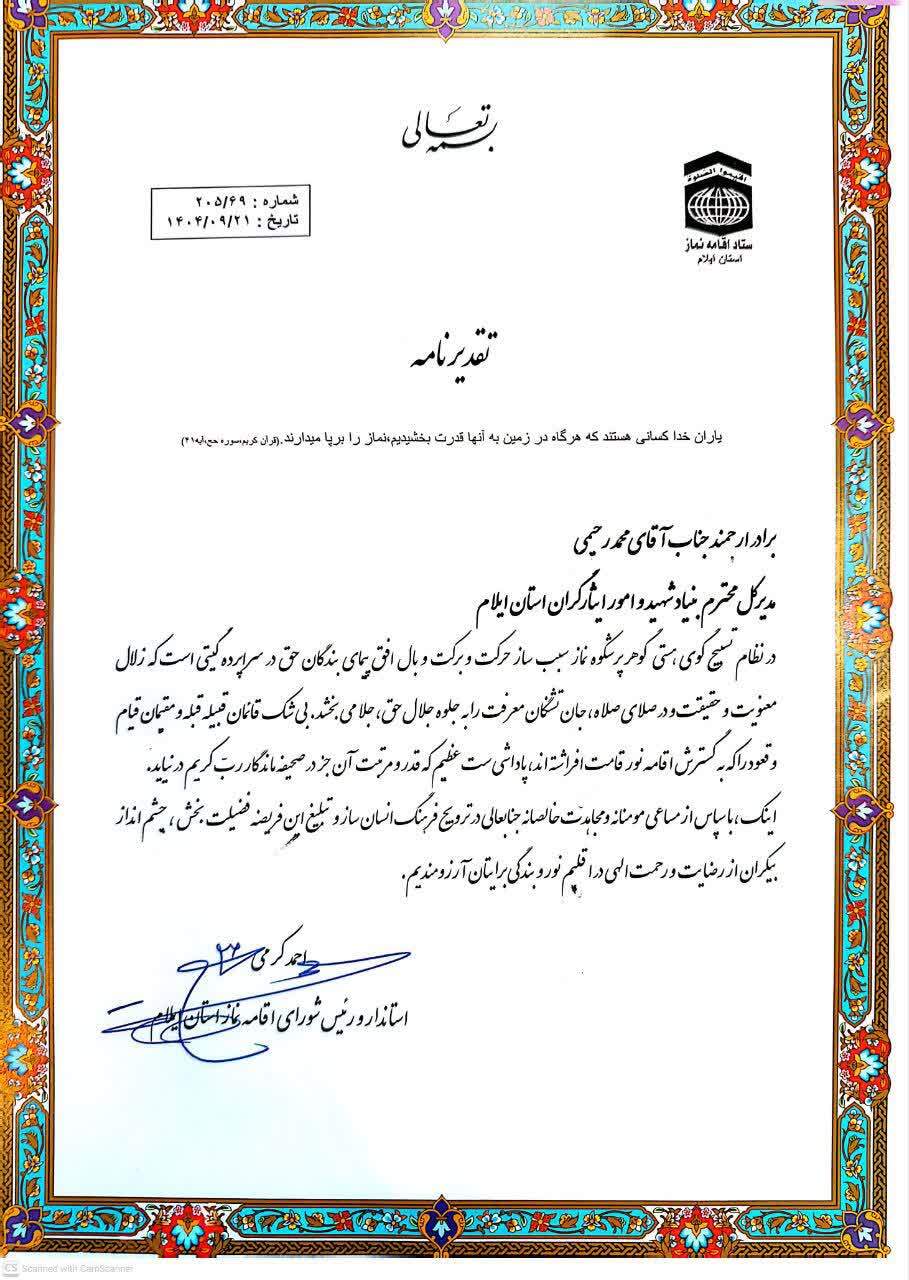 بسمه تعالی
اقیموا الصلوة
ستاد اقامه نماز
استان ایلام
شماره : ۲۰۵/۶۹
تاریخ : ۱۴۰۴/۰۹/۲۱
تقدیرنامه
یاران خدا کسانی هستند که هرگاه در زمین به آنها قدرت بخشیدیم،نماز را برپا میدارند.(قران کریم،سوره حج،ایه۴۱)
برادر ارجمند جناب آقای محمد رحیمی
مدیرکل محترم بنیاد شهید و امور ایثارگران استان ایلام
در نظام تسبیح گوی هستی گوهر پرشکوه نماز سبب ساز حرکت و برکت و بال افق پیمای بندگان حق در سراپرده گیتی است که زلال
معنویت و حقیقت و در صلای صلاه، جان تشنگان معرفت را به جلوه جلال حق، جلا می بخشد. بی شک قائمان قبیله قبله و مقیمان قیام
و قعود را که به گسترش اقامه نور قامت افراشته اند، پاداشی ست عظیم که قدر و مرتبت آن جز در صحیفه ماندگار ربّ کریم در نیاید.
اینک، با سپاس از مساعی مومنانه و مجاهدت خالصانه جنابعالی در ترویج فرهنگ انسان ساز و تبلیغ این فریضه فضیلت بخش ، چشم انداز
بیکران از رضایت و رحمت الهی در اقلیم نور و بندگی برایتان آرزومندیم.
احمد کرمی
استاندار و رئیس شورای اقامه نماز استان ایلام
CS Scanned with CamScanner